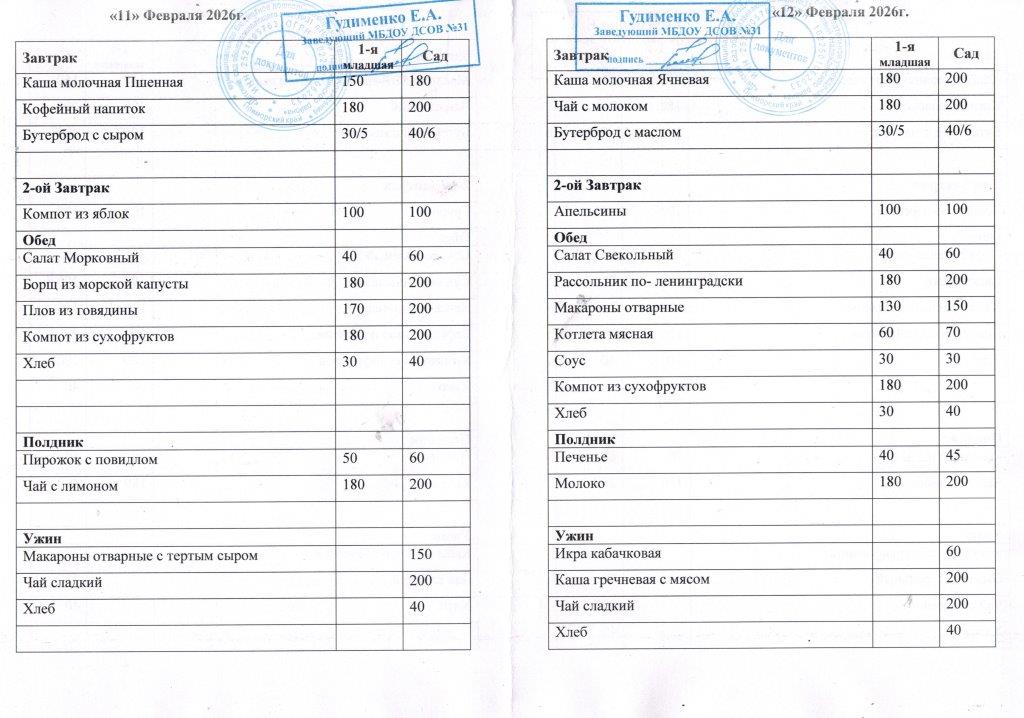 «11» Февраля 2026г.
Гудименко Е.А.
Заведующий МБДОУ ДСОВ №31
подпись
Для документов
Завтрак 1-я младшая Сад
Каша молочная Пшенная 150 180
Кофейный напиток 180 200
Бутерброд с сыром 30/5 40/6
2-ой Завтрак
Компот из яблок 100 100
Обед
Салат Морковный 40 60
Борщ из морской капусты 180 200
Плов из говядины 170 200
Компот из сухофруктов 180 200
Хлеб 30 40
Полдник
Пирожок с повидлом 50 60
Чай с лимоном 180 200
Ужин
Макароны отварные с тертым сыром 150
Чай сладкий 200
Хлеб 40
«12» Февраля 2026г.
Гудименко Е.А.
Заведующий МБДОУ ДСОВ №31
подпись
Для документов
Завтрак 1-я младшая Сад
Каша молочная Ячневая 180 200
Чай с молоком 180 200
Бутерброд с маслом 30/5 40/6
2-ой Завтрак
Апельсины 100 100
Обед
Салат Свекольный 40 60
Рассольник по- ленинградски 180 200
Макароны отварные 130 150
Котлета мясная 60 70
Соус 30 30
Компот из сухофруктов 180 200
Хлеб 30 40
Полдник
Печенье 40 45
Молоко 180 200
Ужин
Икра кабачковая 60
Каша гречневая с мясом 200
Чай сладкий 200
Хлеб 40